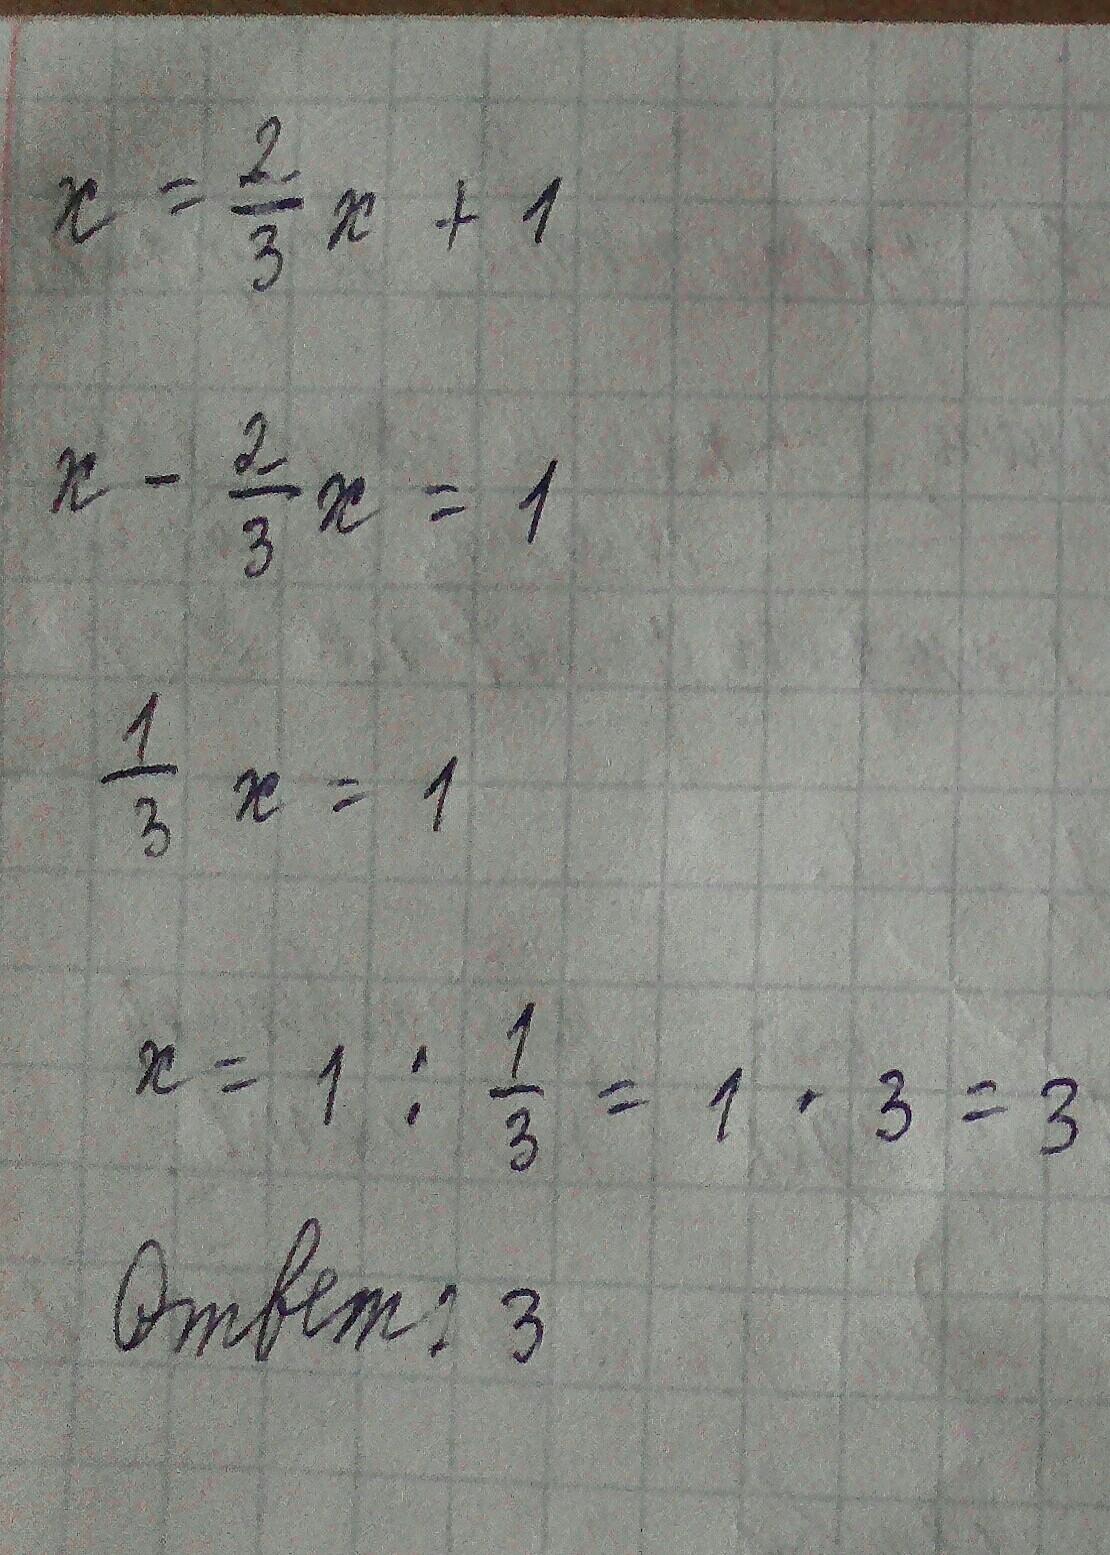 x = 2/3 x + 1
x - 2/3 x = 1
1/3 x = 1
x = 1 : 1/3 = 1 · 3 = 3
Ответ: 3